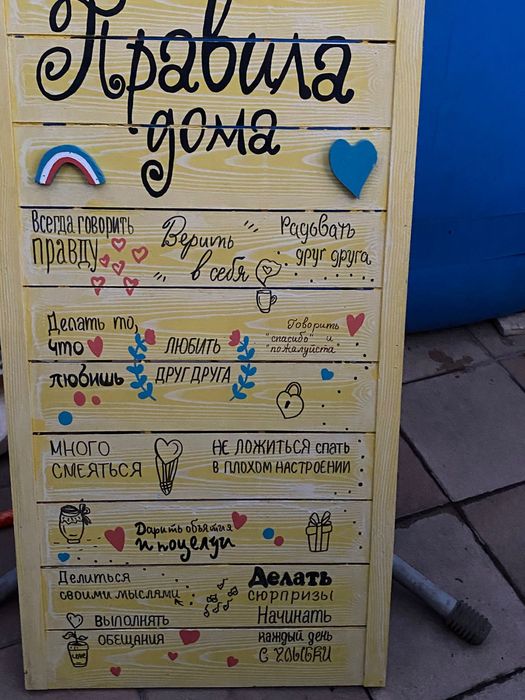 Правила
дома
Всегда говорить
правду
Верить
в себя
Радовать
друг друга
Делать то,
что
любишь
ЛЮБИТЬ
ДРУГ ДРУГА
Говорить
"спасибо" и
пожалуйста
МНОГО
СМЕЯТЬСЯ
НЕ ЛОЖИТЬСЯ спать
В ПЛОХОМ НАСТРОЕНИИ
Дарить объятия
и поцелуи
Делиться
своими мыслями
ВЫПОЛНЯТЬ
ОБЕЩАНИЯ
Делать
СЮРПРИЗЫ
Начинать
каждый день
С УЛЫБКИ
LOVE